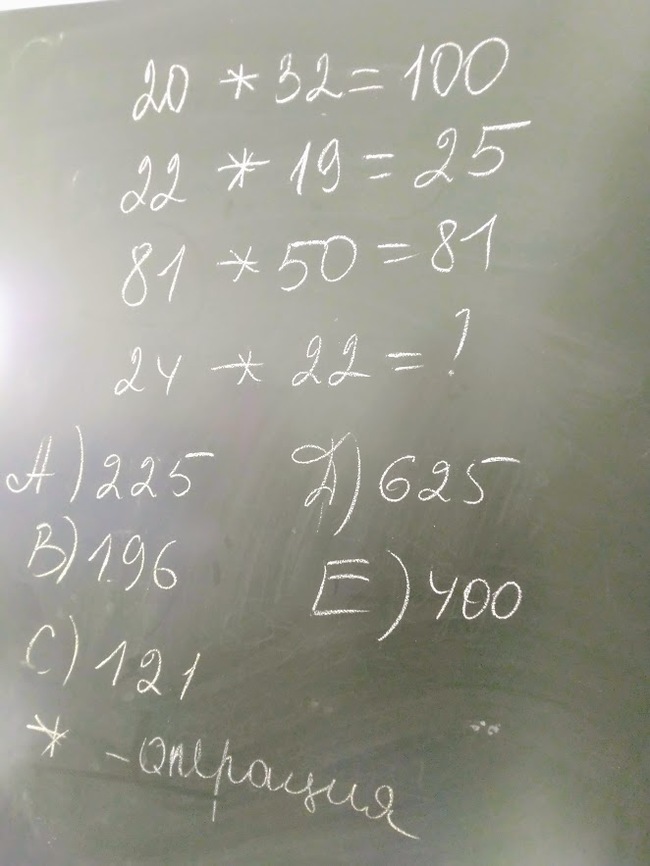 20 * 32 = 100
22 * 19 = 25
81 * 50 = 81
24 * 22 = ?
A) 225 Д) 625
B) 196 E) 400
C) 121
* - операция